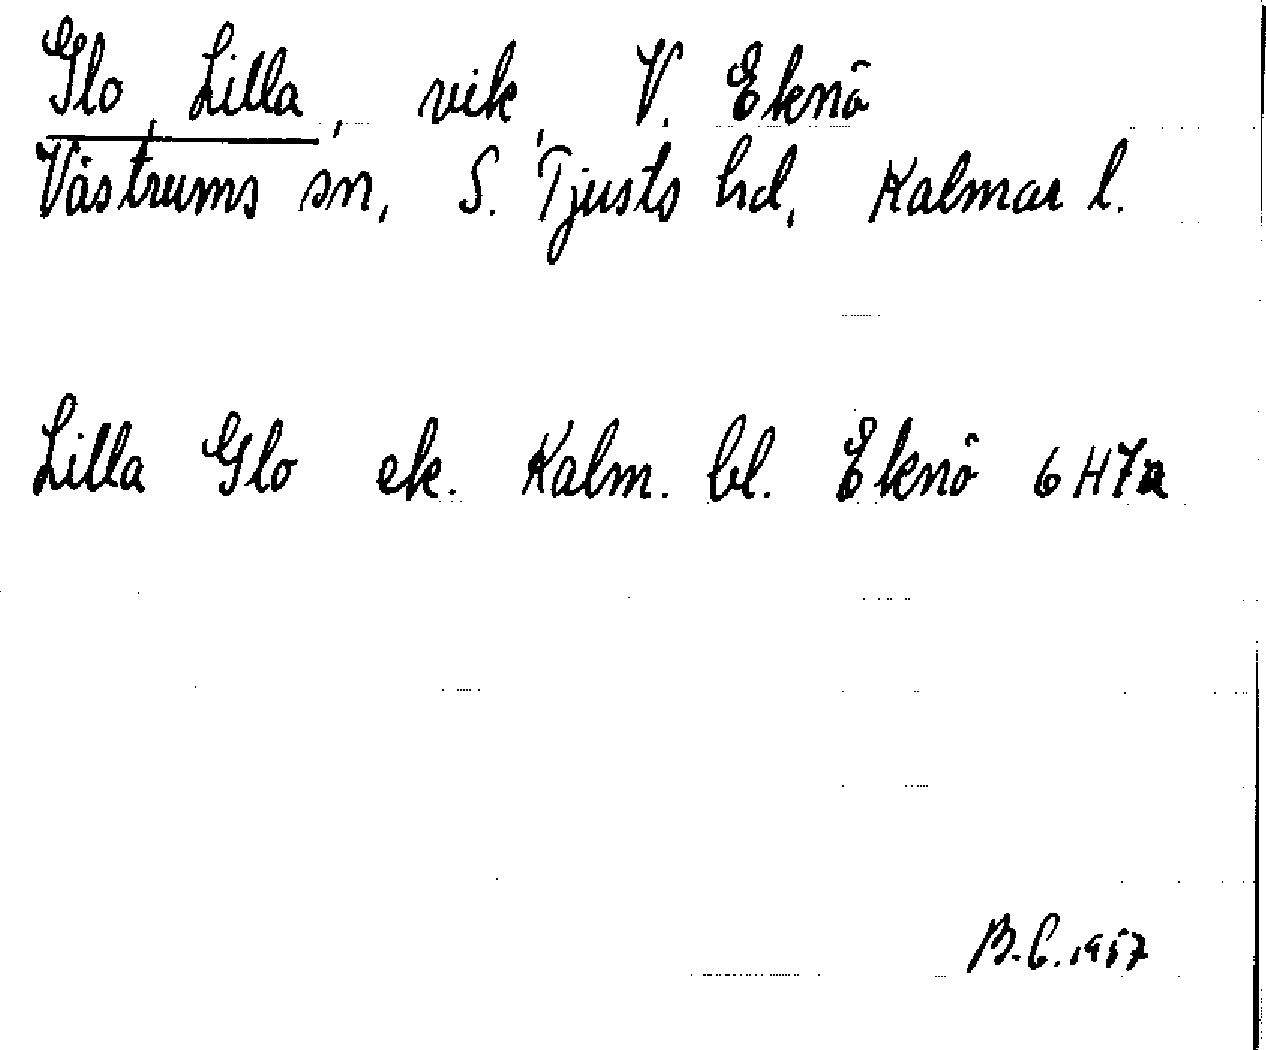 Glo, Lilla, vik, V. Eknö
Västrums sn, S. Tjusts hd, Kalmar l.
Lilla Glo ek. Kalm. bl. Eknö 6H7a
B.C. 1957